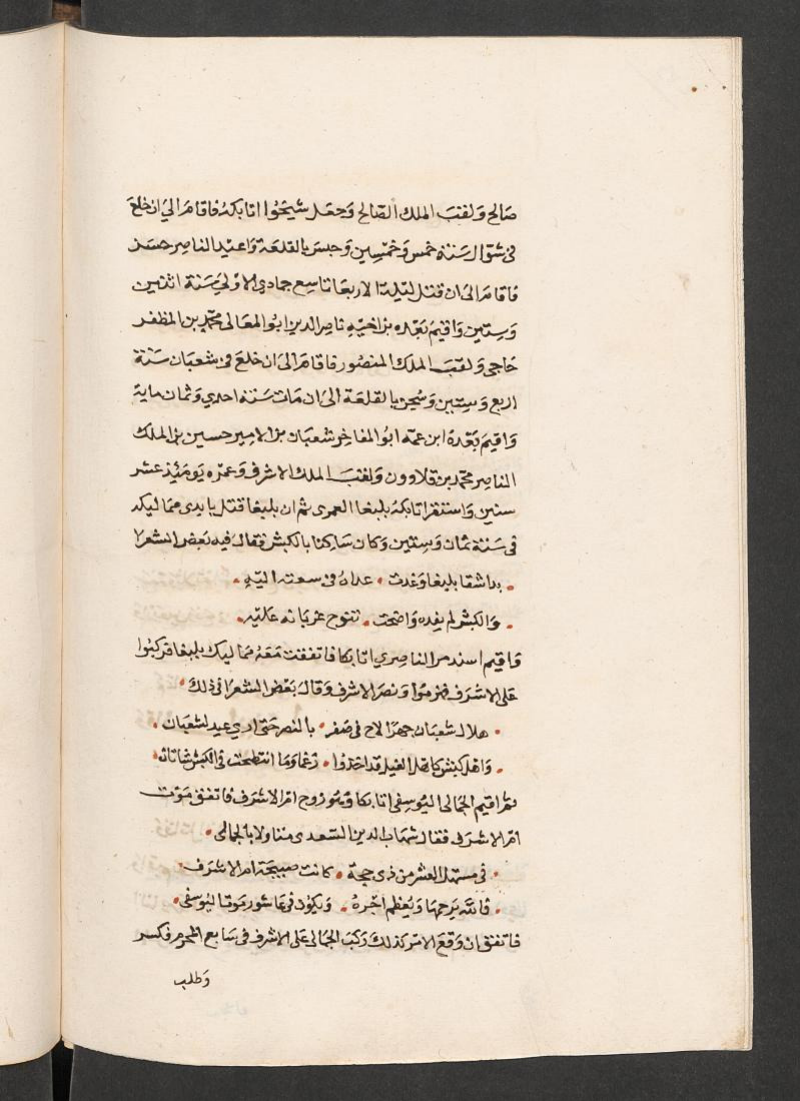 صالح ولقب الملك الصالح وجعل شيخوا اتابكه فاقام الي ان خلع
فى شوال سنة خمس وخمسين وحبس بالقلعة واعيد الناصر حسن
فاقام الى ان قتل ليلة الاربعا تاسع جمادي الاولي سنة اثنين
وستين واقيم بعده بن اخيه ناصر الدين ابو المعالى محمد بن المظفر
حاجى ولقب الملك المنصور فاقام الى ان خلع فى شعبان سنة
اربع وستين وسجن بالقلعة الى ان مات سنة احدي وثمان ماية
واقيم بعده ابن عمه ابو المفاخر شعبان بن الامير حسين بن الملك
الناصر محمد بن قلاوون ولقب الملك الاشرف وعمره يومئذ عشر
سنين واستقر اتابكه يلبغا العمرى ثم ان يلبغا قتل بايدى مماليكه
فى سنة ثمان وستين وكان ساكنا بالكبش فقال فيه بعض الشعرا
بدا شقا يلبغا وغدت • عداه فى سعته اليه •
• والكبش لم يفده واضحت • تنوح غربانه عليه •
واقيم اسندمر الناصري اتابكا فاتفقت معه مماليك يلبغا فركبوا
على الاشرف فهزموا ونصر الاشرف وقال بعض الشعرا فى ذلك •
• هلال شعبان جهرا لاح فى صفر • بالنصر حتى اري عيد لشعبان •
• واهل كبش كاهل الفيل قد اخذوا • رغما وما انتطحت فى الكبش شاتان •
ثم اقيم الجمالى اليوسفى اتابكا وتزوج ام الاشرف فاتفق موت
ام الاشرف فقال شهاب الدين السعدى متفاولا بالجمالى •
• فى مستهل العشر من ذى حجة • كانت صبيحة ام الاشرف •
• فالله يرحمها ويعظم اجره • ويكون فى عاشور موت اليوسفى •
فاتفق ان وقع الامر كذلك ركب الجمالى على الاشرف فى سابع المحرم فكسر
وطلب